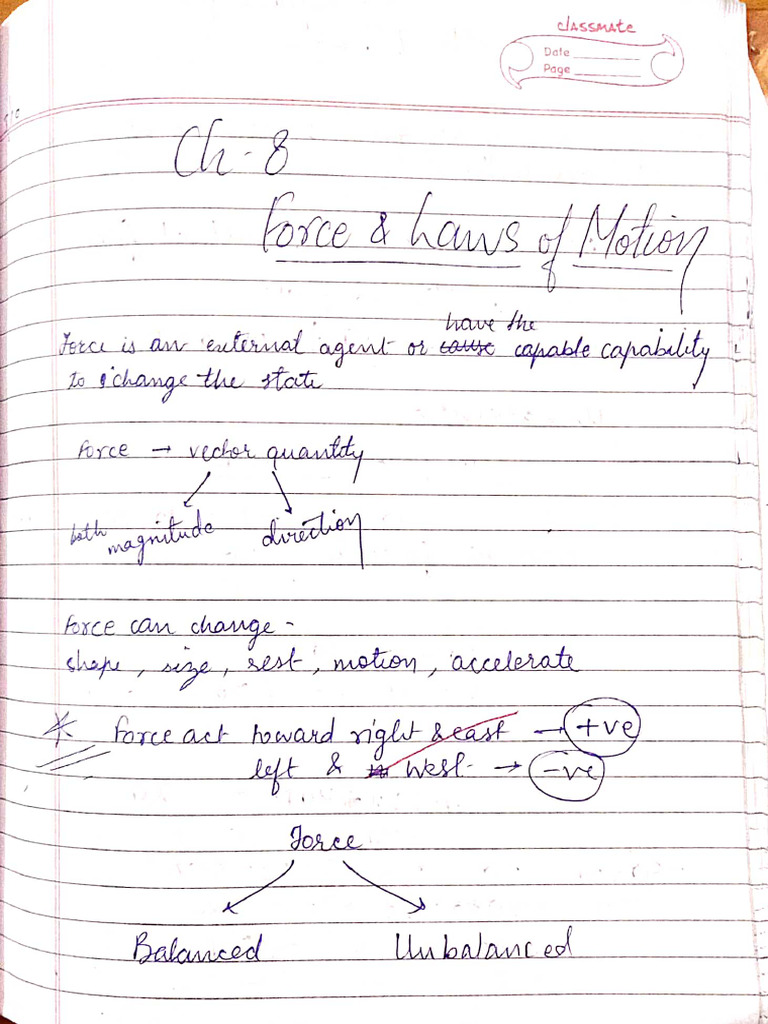 classmate
Date
Page
Ch-8
Force & Laws of Motion
have the
Force is an external agent or cause capable capability
to change the state
Force → vector quantity
both magnitude direction
Force can change -
shape, size, rest, motion, accelerate
* Force act toward right & east → +ve
left & west → -ve
Force
Balanced Unbalanced